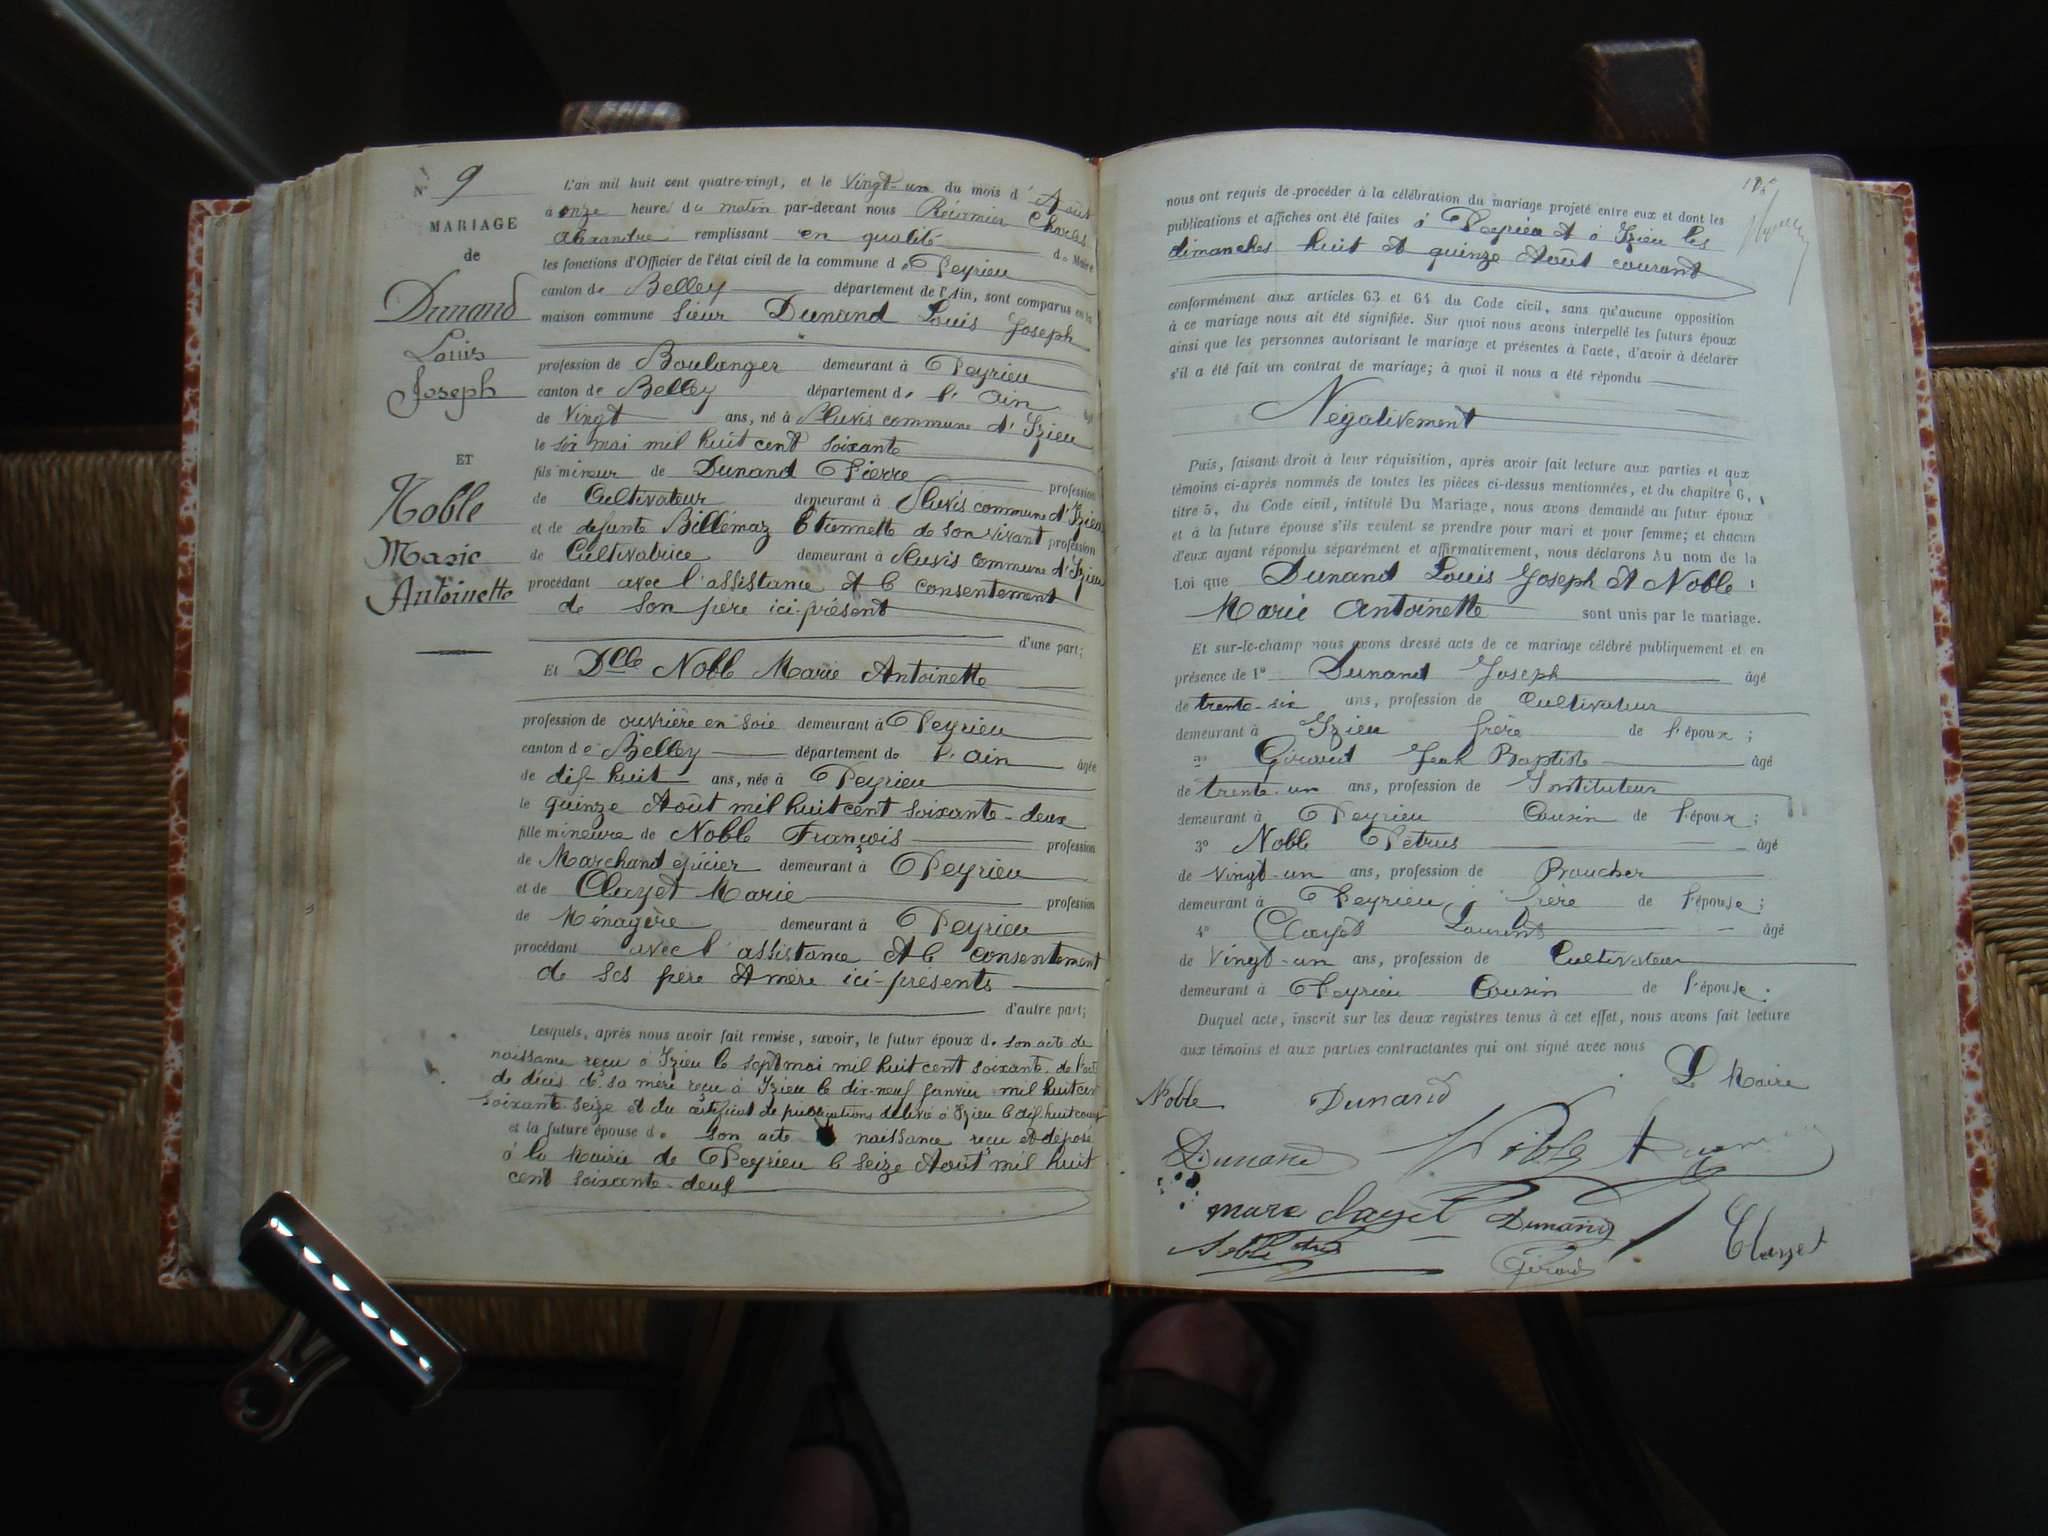 N° 9
MARIAGE
de
Dunand
Louis
Joseph
ET
Noble
Marie
Antoinette
L'an mil huit cent quatre-vingt, et le Vingt-un du mois d'Août
à onze heure du matin par-devant nous Récamier Charles
Alexandre remplissant en qualité de Maire
les fonctions d'Officier de l'état civil de la commune de Peyrieu
canton de Belley département de l'Ain, sont comparus en la
maison commune Sieur Dunand Louis Joseph
profession de Boulanger demeurant à Peyrieu
canton de Belley département de l'Ain âgé
de Vingt ans, né à Pluvis commune d'Izieu
le six mai mil huit cent soixante
fils mineur de Dunand Pierre profession
de Cultivateur demeurant à Pluvis commune d'Izieu
et de defunte Billémaz Etiennette de son vivant profession
de Cultivatrice demeurant à Pluvis commune d'Izieu
procédant avec l'assistance et le consentement
de son père ici-présent
d'une part;
Et Dlle Noble Marie Antoinette
profession de ouvrière en soie demeurant à Peyrieu
canton de Belley département de l'Ain âgée
de dix-huit ans, née à Peyrieu
le quinze Août mil huit cent soixante-deux
fille mineure de Noble François profession
de Marchand épicier demeurant à Peyrieu
et de Clayet Marie profession
de Ménagère demeurant à Peyrieu
procédant avec l'assistance et le consentement
de ses père et mère ici-présents
d'autre part;
Lesquels, après nous avoir fait remise, savoir, le futur époux de son acte de
naissance reçu à Izieu le sept mai mil huit cent soixante de l'acte
de décès de sa mère reçu à Izieu le dix-neuf Janvier mil huit cent
soixante-seize et du certificat de publications délivré à Izieu le dix-huit courant
et la future épouse de son acte naissance reçu et déposé
à la Mairie de Peyrieu le seize Août mil huit
cent soixante-deux
nous ont requis de procéder à la célébration du mariage projeté entre eux et dont les
publications et affiches ont été faites à Peyrieu et à Izieu les
dimanches huit et quinze Août courant
conformément aux articles 63 et 64 du Code civil, sans qu'aucune opposition
à ce mariage nous ait été signifiée. Sur quoi nous avons interpellé les futurs époux
ainsi que les personnes autorisant le mariage et présentes à l'acte, d'avoir à déclarer
s'il a été fait un contrat de mariage; à quoi il nous a été répondu
Négativement
Puis, faisant droit à leur réquisition, après avoir fait lecture aux parties et aux
témoins ci-après nommés de toutes les pièces ci-dessus mentionnées, et du chapitre 6,
titre 5, du Code civil, intitulé Du Mariage, nous avons demandé au futur époux
et à la future épouse s'ils veulent se prendre pour mari et pour femme; et chacun
d'eux ayant répondu séparément et affirmativement, nous déclarons Au nom de la
Loi que Dunand Louis Joseph et Noble
Marie Antoinette sont unis par le mariage.
Et sur-le-champ nous avons dressé acte de ce mariage célébré publiquement et en
présence de 1° Dunand Joseph âgé
de trente-six ans, profession de Cultivateur
demeurant à Izieu frère de l'époux;
2° Giroud Jean Baptiste âgé
de trente-un ans, profession de Instituteur
demeurant à Peyrieu Cousin de l'époux;
3° Noble Petrus âgé
de vingt-un ans, profession de Boucher
demeurant à Peyrieu, frère de l'épouse;
4° Clayet Laurent âgé
de Vingt-un ans, profession de Cultivateur
demeurant à Peyrieu Cousin de l'épouse.
Duquel acte, inscrit sur les deux registres tenus à cet effet, nous avons fait lecture
aux témoins et aux parties contractantes qui ont signé avec nous
Le Maire
Noble Dunand
Dunand Noble
marie Clayet Dunand
Noble Giroud Clayet